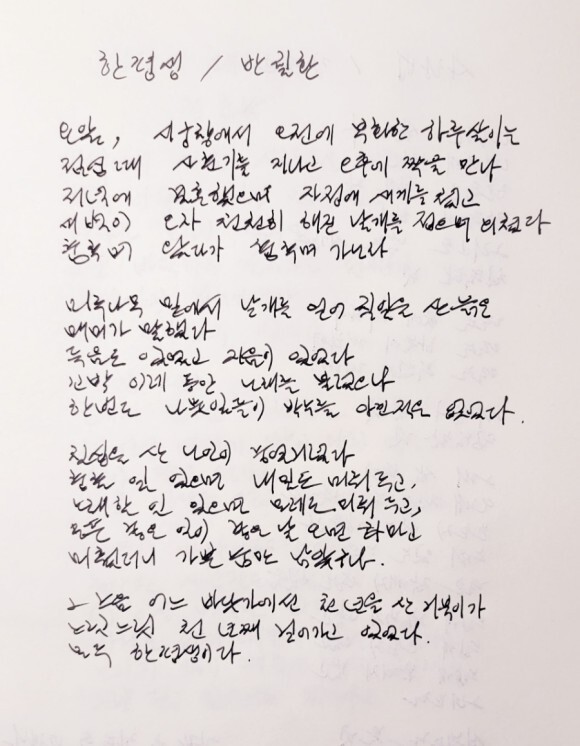 한평생 / 반칠환
요 앞, 시궁창에서 오전에 부화한 하루살이는
점심 때 사춘기를 지나고 오후에 짝을 만나
저녁에 결혼했으며 자정에 새끼를 낳고
새벽이 오자 천천히 해진 날개를 접으며 외쳤다
춤추며 왔다가 춤추며 가노라
미루나무 밑에서 날개를 얻어 칠일을 산 늙은
매미가 말했다
득음도 있었고 지음이 있었다
꼬박 이레 동안 노래를 불렀으나
한번도 나뭇잎들이 박수를 아낀 적은 없었다.
칠십을 산 노인이 중얼거렸다
춤출 일 있으면 내일로 미뤄 두고,
노래할 일 있으면 모레로 미뤄 두고,
모든 좋은 일이 좋은 날 오면 하마고
미뤘더니 가쁜 숨만 남았구나.
그 즈음 어느 바닷가에선 천 년을 산 거북이가
느릿느릿 천 년째 걸어가고 있었다.
모두 한평생이다.